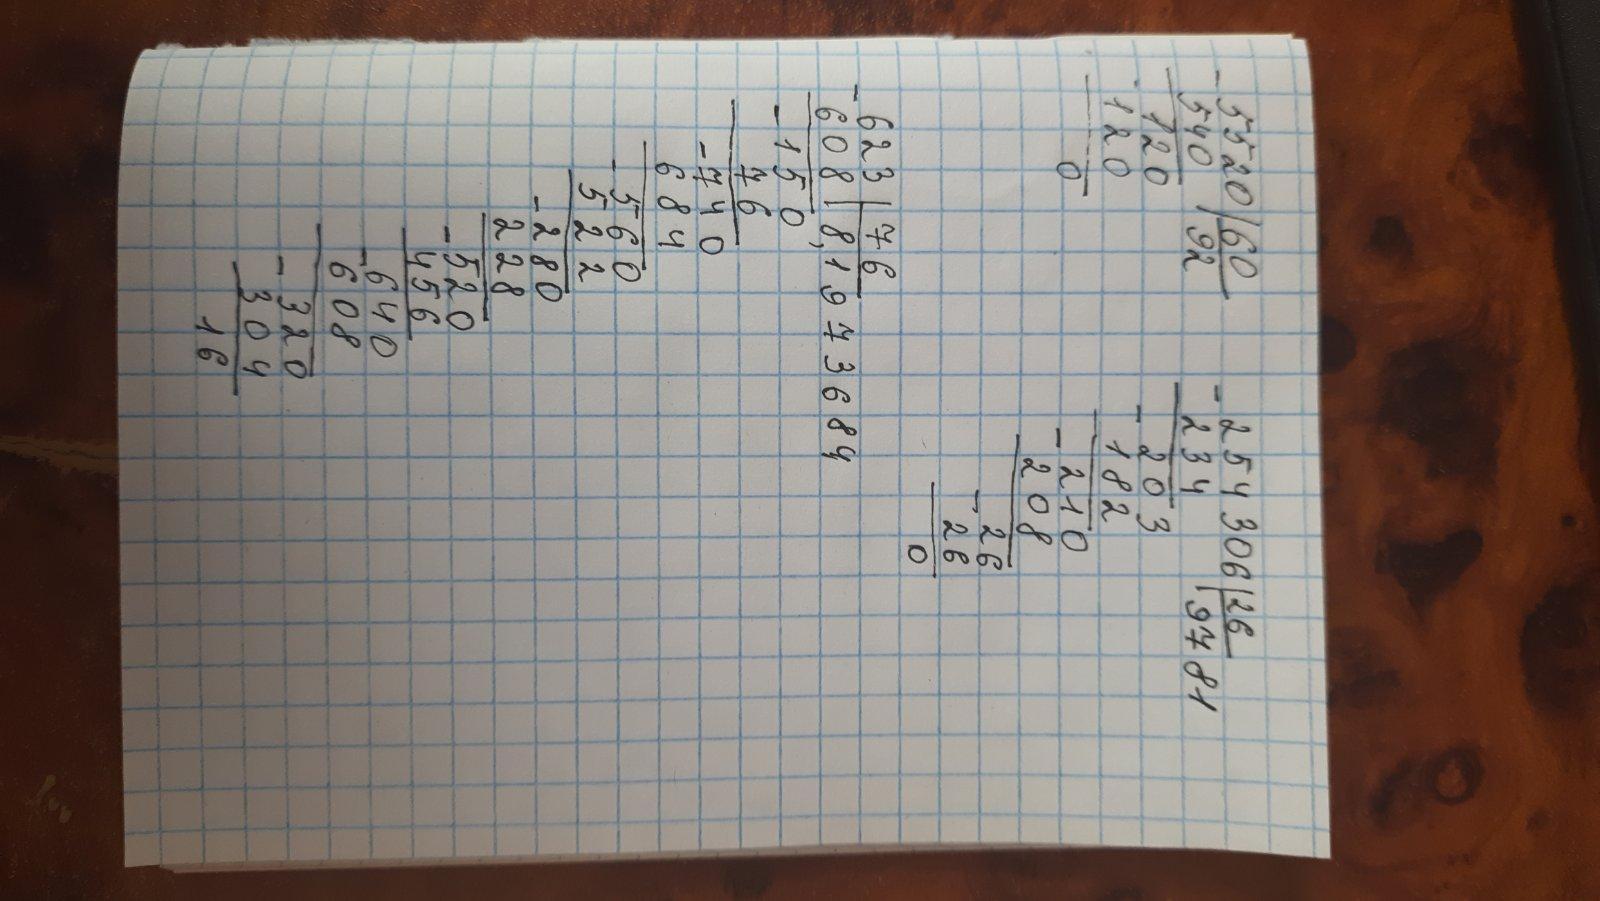 -5520|60
540 |92
120
-120
0
-254306|26
-234 |9781
-203
182
-210
208
-26
26
0
-623|76
608|8,1973684
-150
76
-740
684
-560
522
-280
228
-520
456
-640
608
-320
304
16